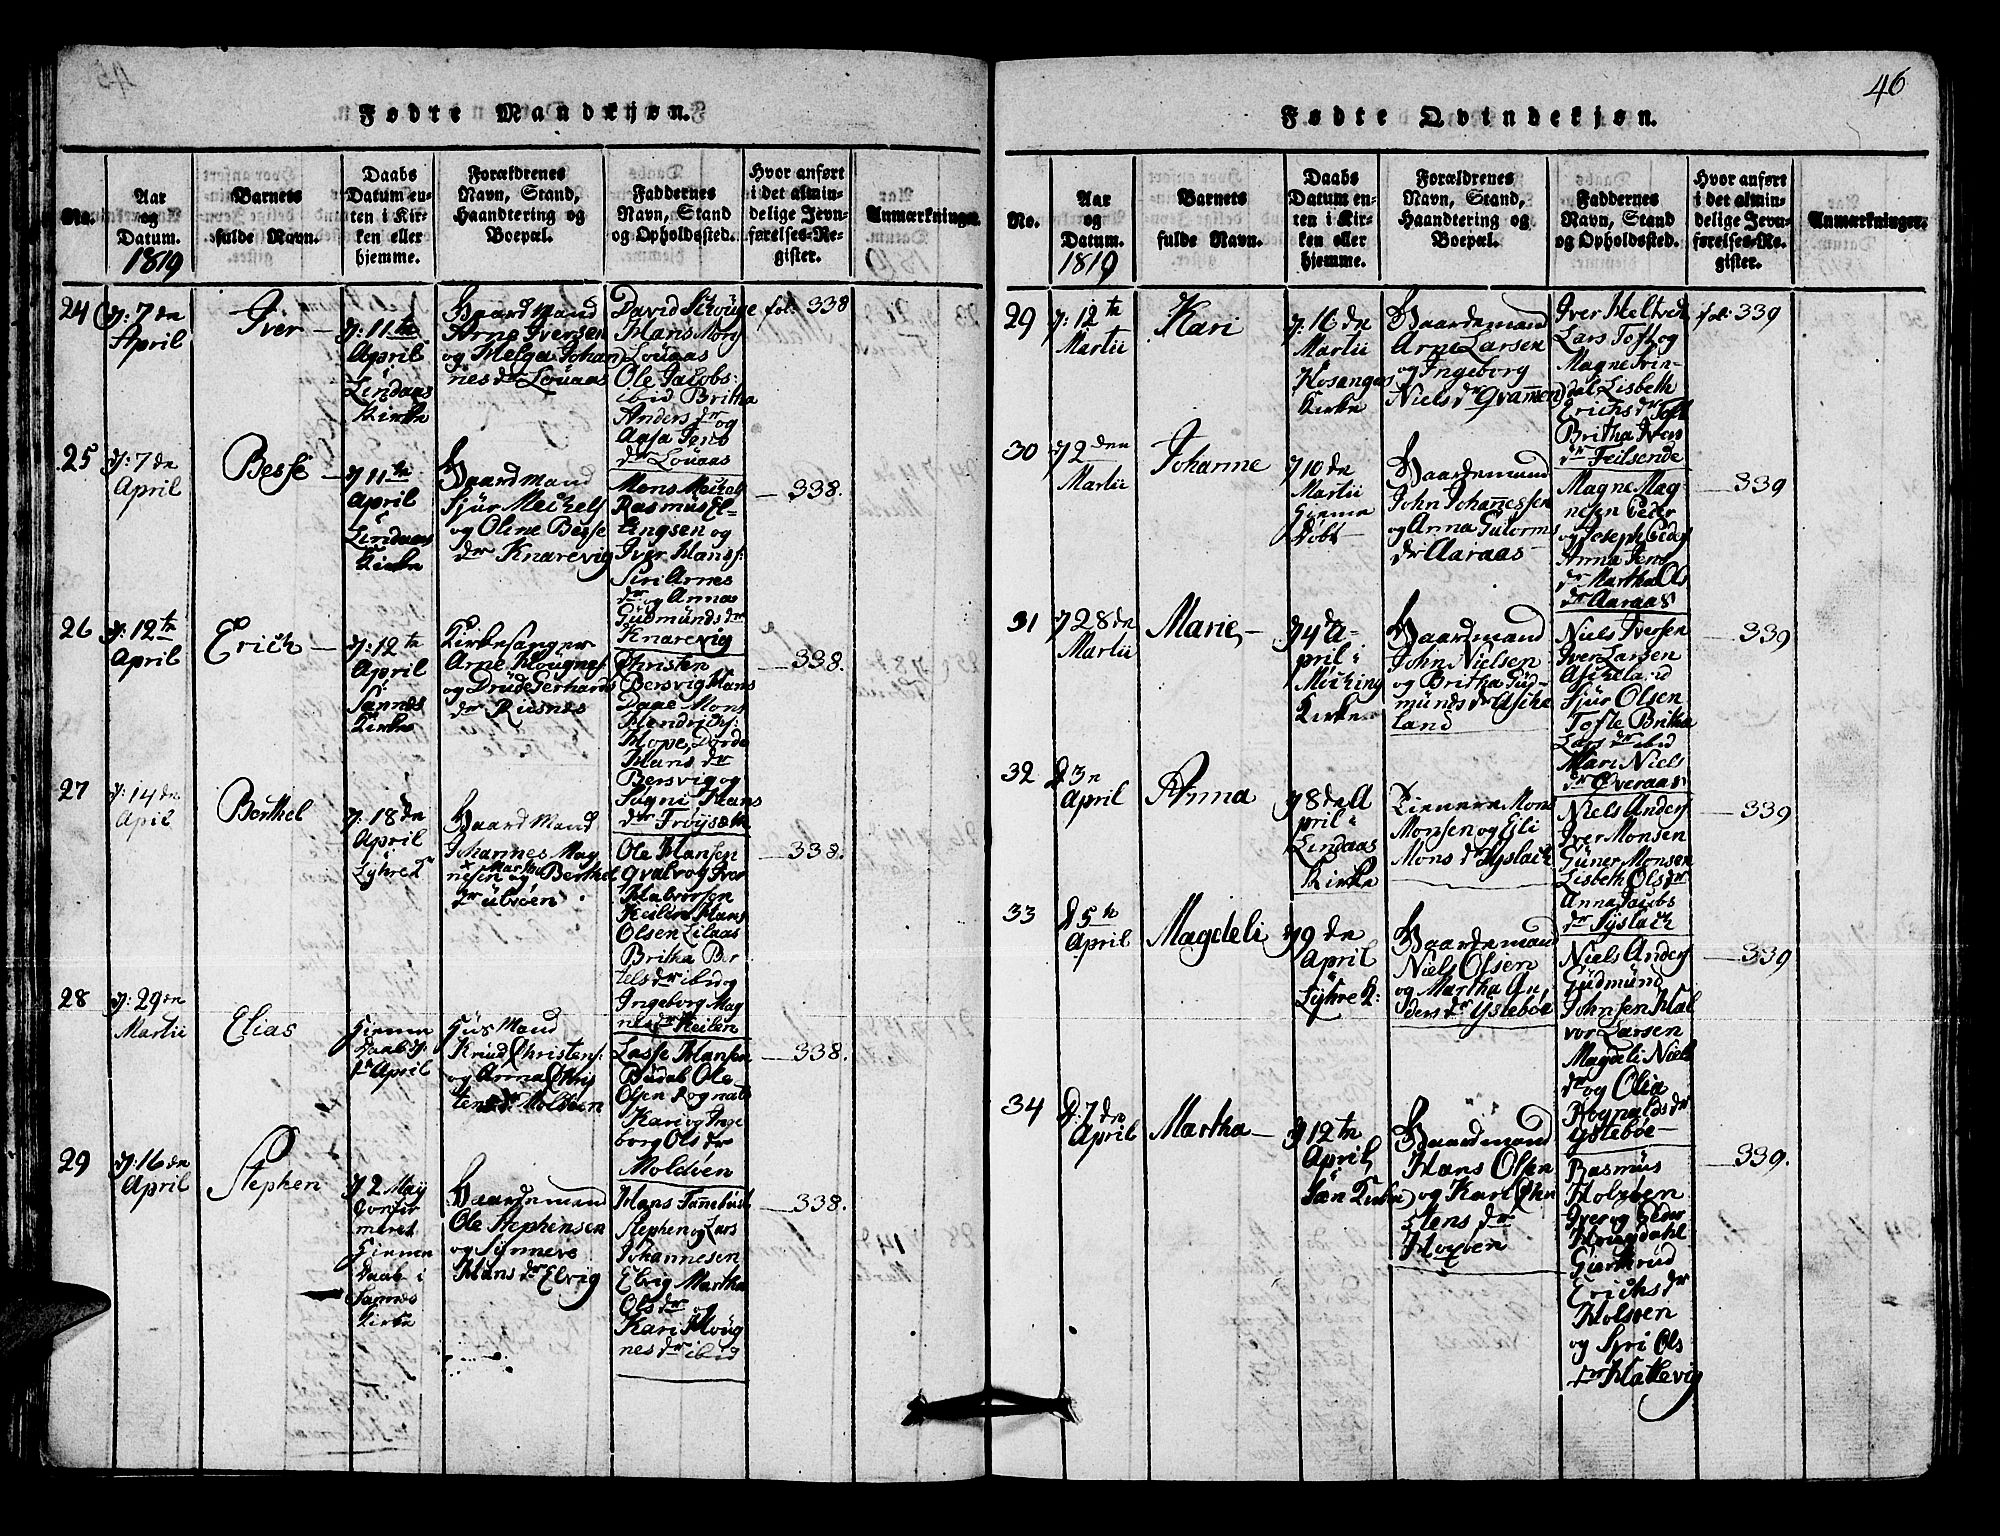 46
Fødte Mandkjøn.
No.
Aar
og
Datum.
1819
Barnets
fulde Navn.
Daabs
Datum en-
ten i Kir-
ken eller
hjemme.
Forældrenes
Navn, Stand,
Haandtering og
Boepæl.
Faddernes
Navn, Stand
og Opholdssted.
Hvor anført
i det almin-
delige Jevn-
førelses-Re-
gister.
Anmærkninger.
24
7 de
April
Iver
11te
April
i
Lindaas
Kirke
Gaardmand
Arne Iversen
og Helga Johan
nes dr Louaas
David Skouge
Hans Mons
Louaas
Ole Jacobs:
ibid Britha
Anders dr og
Aasa Jens
dr Louaas
fol: 338
25
7 de
April
Besse
11te
April
i
Lindaas
Kirke
Gaardmand
Sjur Michels
og Oline Besse
dr Knarevig
Mons Michels
Rasmus El-
lingsen og
Iver Hans:
Siri Arnes
dr og Anna
Gudmunds dr
Knarevig
338.
26
12te
April
Erich
12te
April
i
Sannes
Kirke
Kirkesanger
Arne Mougnes:
og Drude Gerhards
dr Risnes
Christen
Bersvig Hans
Daae Mons
Hendrichs:
Hope, Dorde
Hans dr
Bersvig og
Sogni Hans
dr Frøyseth
338.
27
14 de
April
Berthel
18 de
April
i
Eyhred
Gaardmand
Johannes Mag
nesen og Martha Berthel
dr Ulvøen
Ole Hansen
Qvalv og Iver
Halvorsen
Keilen Hans
Olsen Lilaas
Britha Ber
tels dr ibid og
Ingeborg Mag
nes dr Keilen
338.
28
29 de
Martii
Elias
Hiemme
Daab
April
Huusmand
Knud Christens:
og Anna Chris
tens dr Moldøen
Lasse Hansen
Budal Ole
Olsen Rognald
Kari og Inge
borg Ols dr
Moldøen
338.
29
16 de
April
Stephen
2 May
Confir
meret
Hiemme
Daab i
Sannes
Kirke
Gaardemand
Ole Stephensen
og Synneve
Hans dr Elvig
Hans
Stephen og Lars
Johannesen
Elvig Martha
Ols dr og
Kari Moug
nes dr ibid
338.
Fødte Qvindekjøn.
No.
Aar
og
Datum.
1819
Barnets
fulde Navn.
Daabs
Datum en-
ten i Kir-
ken eller
hjemme.
Forældrenes
Navn, Stand,
Haandtering og
Boepæl.
Faddernes
Navn, Stand
og Opholdssted.
Hvor anført
i det almin-
delige Jevn-
førelses-Re-
gister.
Anmærkninger.
29
12te
Martii
Kari
16 de
Martii
Hosanger
Kirke
Gaardemand
Arne Larsen
og Ingeborg
Niels dr Qvammen
Iver Heltvet
Lars Toft og
Magne Trin-
dal Lisbeth
Erichs dr Toft
Britha Ivers
dr Feilsende
fol: 339
30
2 den
Martii
Johanne
10 de
Martii
Hiemme
Døbt
Gaardemand
John Johanessen
og Anna Gutorms
dr Aaraas
Magne Mag-
nesen Peder
og Joseph Peders
Anna Jens
dr Martha Ols
dr Aaraas
339
31
28 de
Martii
Marie
4de A-
pril i
Mycking
Kirke
Gaardmand
John Nielsen
og Britha Gud-
munds dr Aske
land
Niels Iversen
Iver Larsen
Askeland
Sjur Olsen
Tofte Britha
Lars dr ibid
Mari Niels
dr Øveraas
339
32
3 de
April
Anna
8 de A
pril i
Lindaas
Kirke
Tienere Mons
Monsen og Eli
Mons dr Syslach
Niels Anders
Iver Monsen
Guner Monsen
Lisbeth Ols dr
Anna Jacobs
dr Syslach
339
33
5te
April
Magdeli
9 de
April
i
Eyhre K:
Gaardemand
Niels Olsen
og Martha An
ders dr Ystebøe
Niels Anders
Gudmund
Johnsen Hal
vor Larsen
Magdeli Niels
dr og Olia
Rognalds dr
Ystebøe
339
34
7 de
April
Martha
12te
April
i
San Kirke
Gaardmand
Hans Olsen
og Kari Chri
stens dr
Hopen
Rasmus
Holsøen
Iver og Peder
Hougsdahl
Giertrud
Erichs dr
Holsøen
og Syri Ols
dr Hattevig
339.